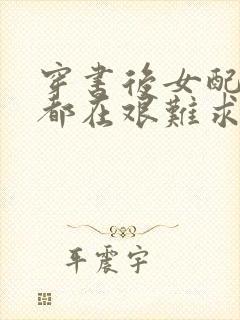 穿書後女配
都在艰難求
平震宇